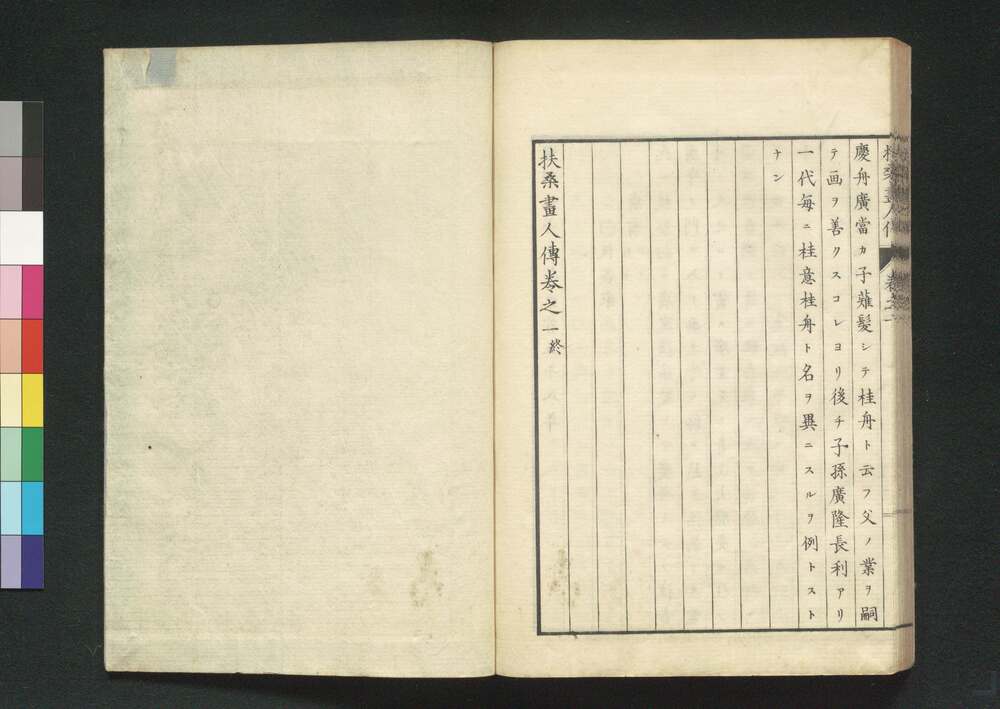 慶舟廣當カ子薙髮シテ桂舟ト云フ父ノ業ヲ嗣
テ画ヲ善クスコレヨリ後チ子孫廣隆長利アリ
一代每ニ桂意桂舟ト名ヲ異ニスルヲ例トスト
ナン
扶桑畫人傳卷之一終